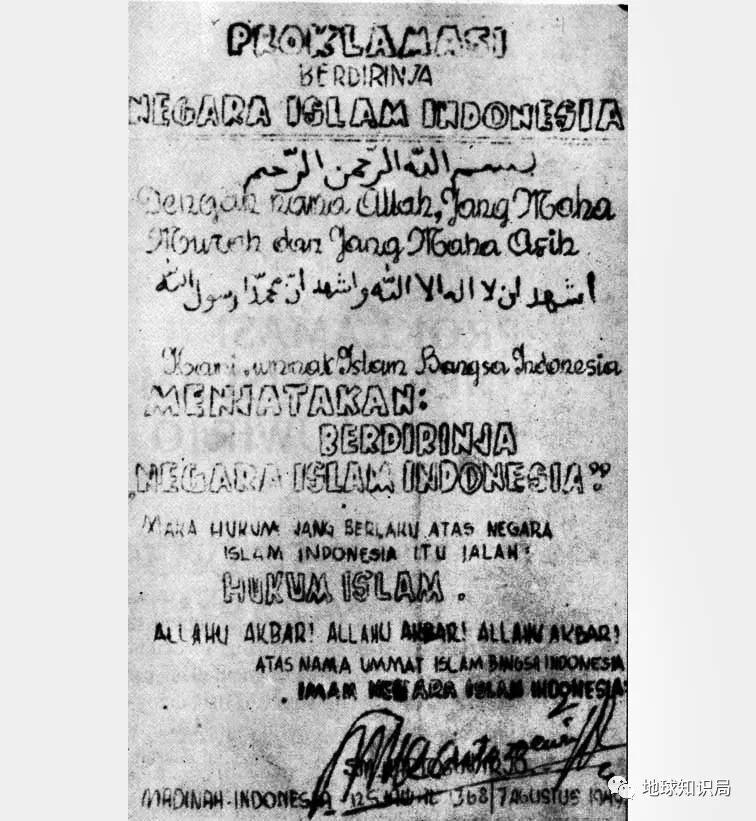 PROKLAMASI
BERDIRINJA
NEGARA ISLAM INDONESIA
بسم الله الرّحمن الرّحيم
Dengan nama Allah, Jang Maha
Murah dan Jang Maha Asih
اشهد ان لا اله الا الله واشهد انّ محمّدا رسول الله
Kami, ummat Islam Bangsa Indonesia
MENJATAKAN:
BERDIRINJA
„NEGARA ISLAM INDONESIA"
MAKA HUKUM JANG BERLAKU ATAS NEGARA
ISLAM INDONESIA ITU JALAH:
HUKUM ISLAM.
ALLAHU AKBAR! ALLAHU AKBAR! ALLAHU AKBAR!
ATAS NAMA UMMAT ISLAM BANGSA INDONESIA
IMAM NEGARA ISLAM INDONESIA:
MADINAH-INDONESIA 12 1368/7 AGUSTUS
地球知识局